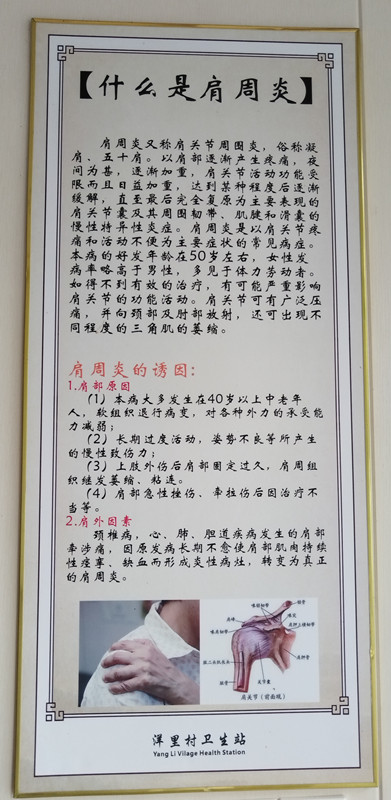 【什么是肩周炎】
肩周炎又称肩关节周围炎，俗称凝
肩、五十肩。以肩部逐渐产生疼痛，夜
间为甚，逐渐加重，肩关节活动功能受
限而且日益加重，达到某种程度后逐渐
缓解，直至最后完全复原为主要表现的
肩关节囊及其周围韧带、肌腱和滑囊的
慢性特异性炎症。肩周炎是以肩关节疼
痛和活动不便为主要症状的常见病症。
本病的好发年龄在50岁左右，女性发
病率略高于男性，多见于体力劳动者。
如得不到有效的治疗，有可能严重影响
肩关节的功能活动。肩关节可有广泛压
痛，并向颈部及肘部放射，还可出现不
同程度的三角肌的萎缩。
肩周炎的诱因：
1.肩部原因
（1）本病大多发生在40岁以上中老年
人，软组织退行病变，对各种外力的承受能
力减弱；
（2）长期过度活动，姿势不良等所产生
的慢性致伤力；
（3）上肢外伤后肩部固定过久，肩周组
织继发萎缩、粘连。
（4）肩部急性挫伤、牵拉伤后因治疗不
当等。
2.肩外因素
颈椎病，心、肺、胆道疾病发生的肩部
牵涉痛，因原发病长期不愈使肩部肌肉持续
性痉挛、缺血而形成炎性病灶，转变为真正
的肩周炎。
锁骨
喙锁韧带
肩峰
喙突
喙肩韧带
肩胛骨
肱二头肌长头
关节囊
肱骨
肩关节（前面观）
洋里村卫生站
Yang Li Vilage Health Station